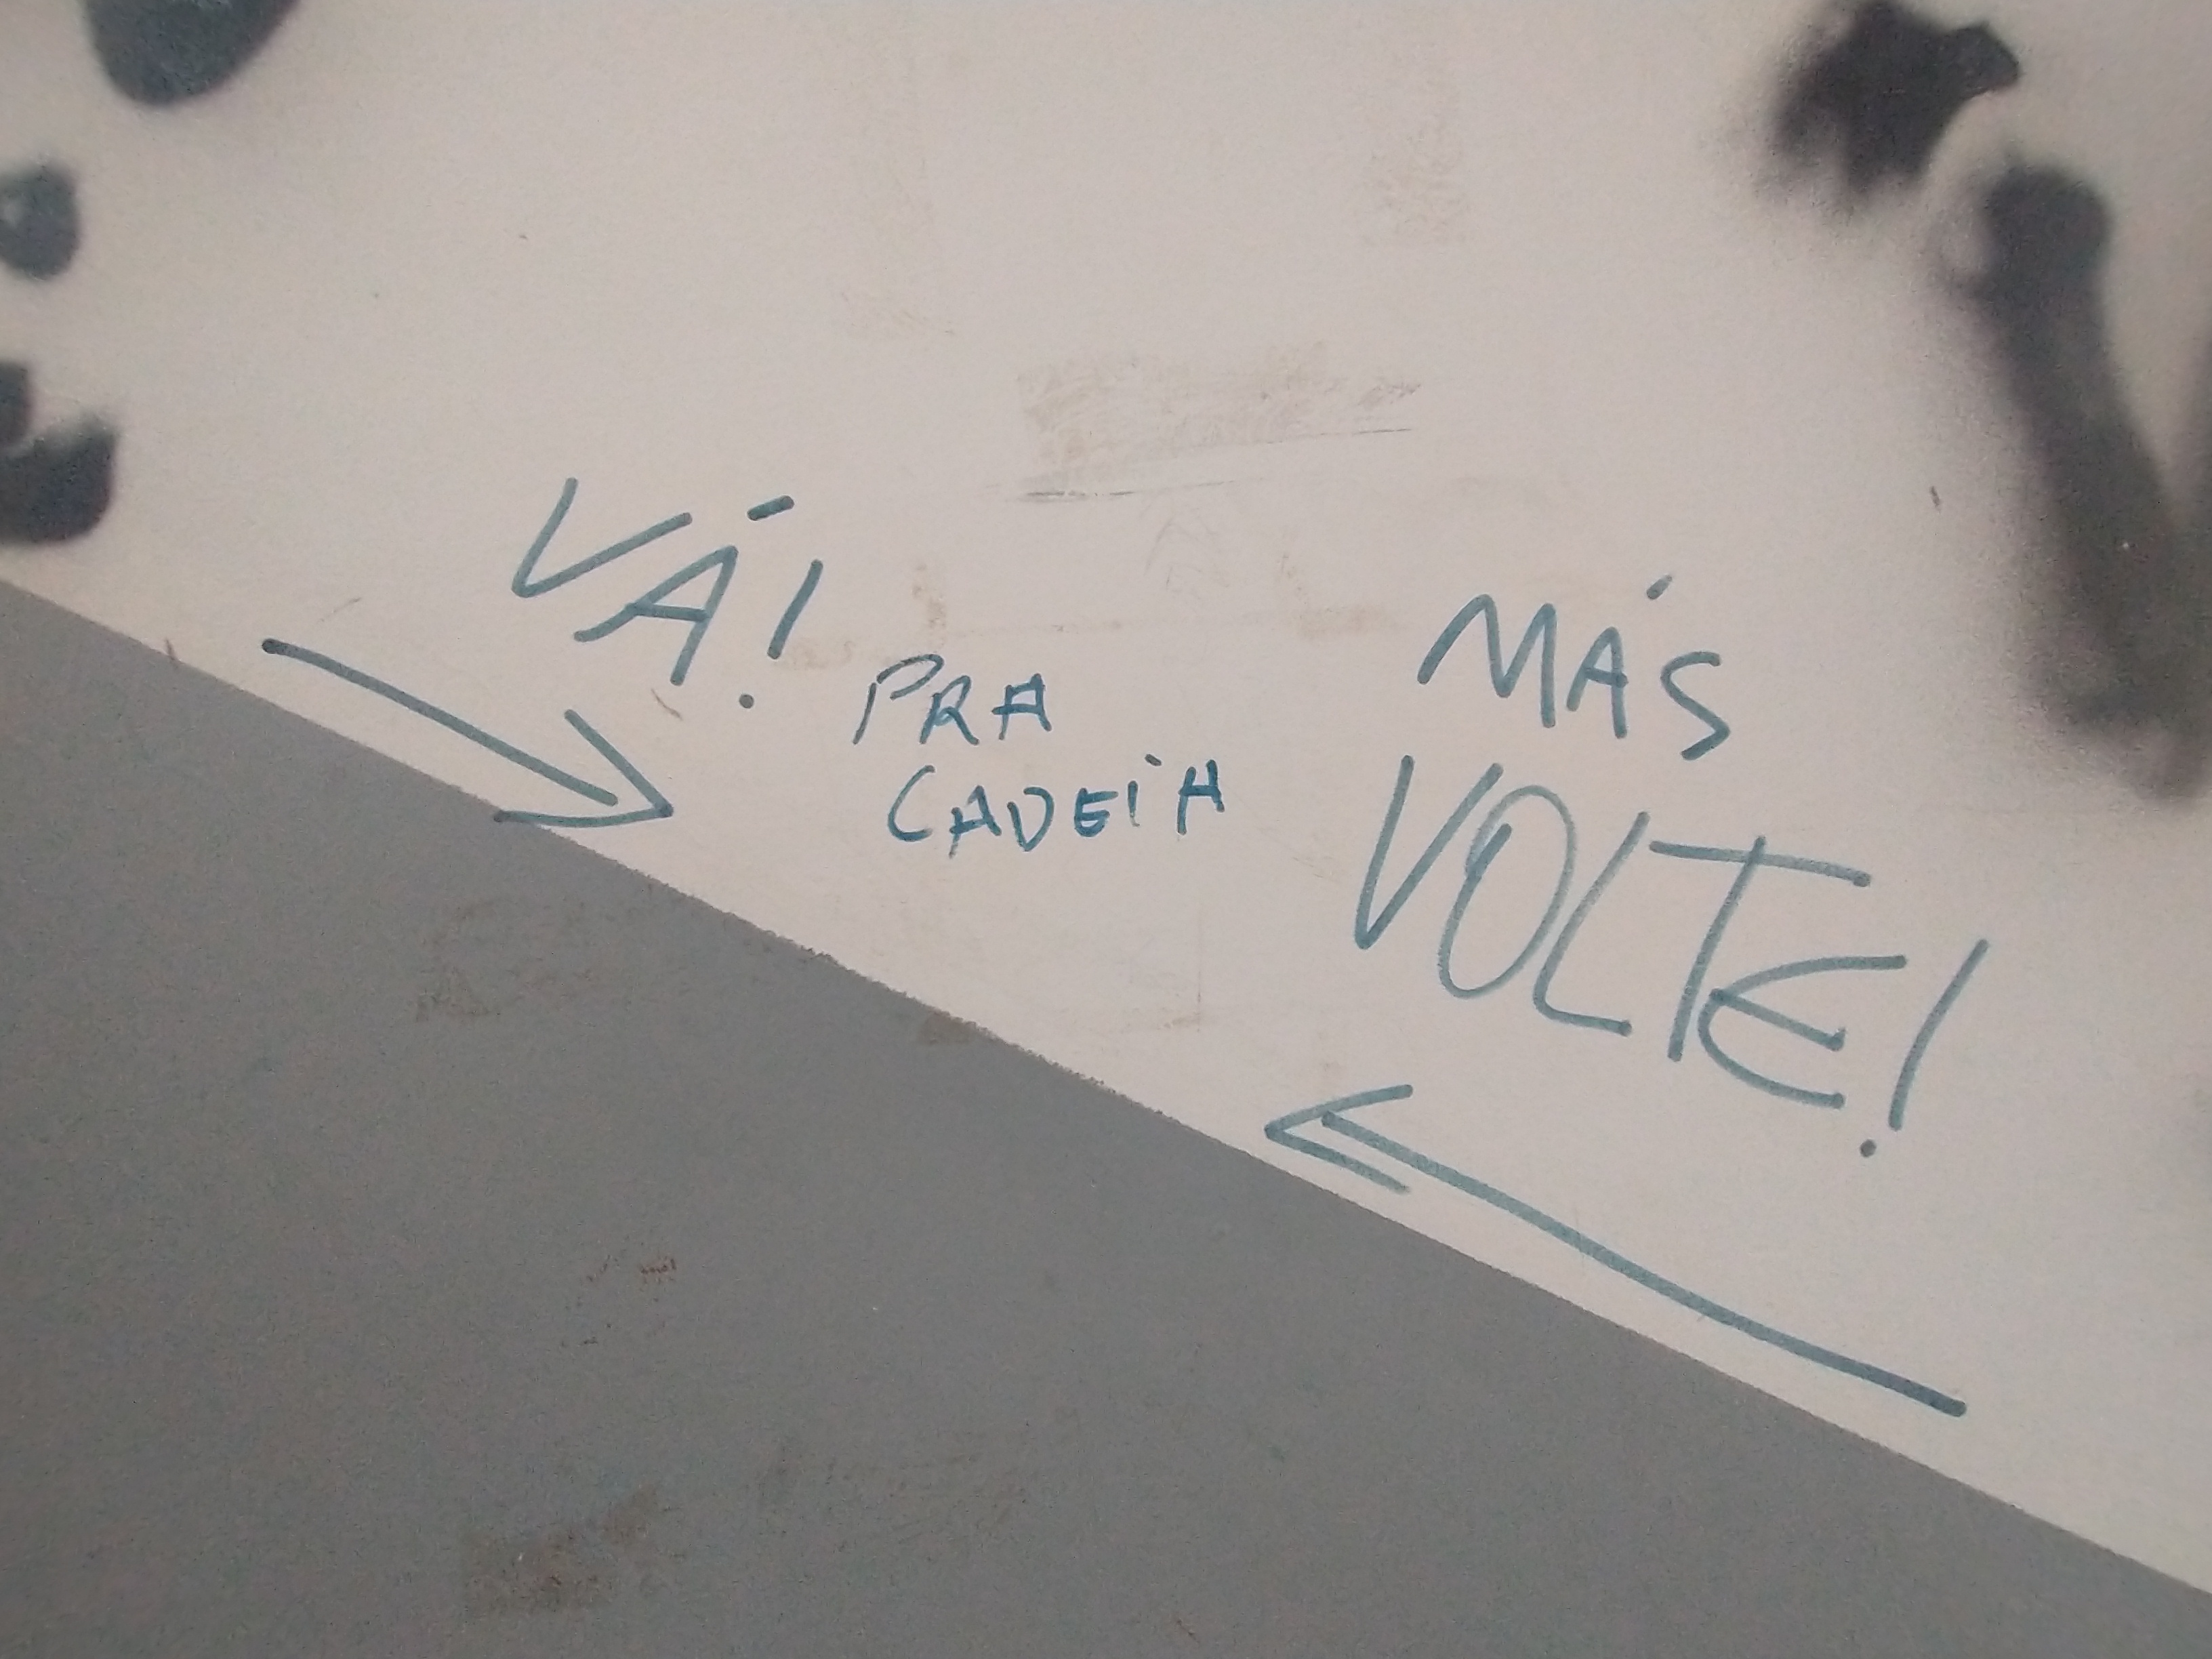 VÁ!
PRA
CADEIA
MÁS
VOLTE!